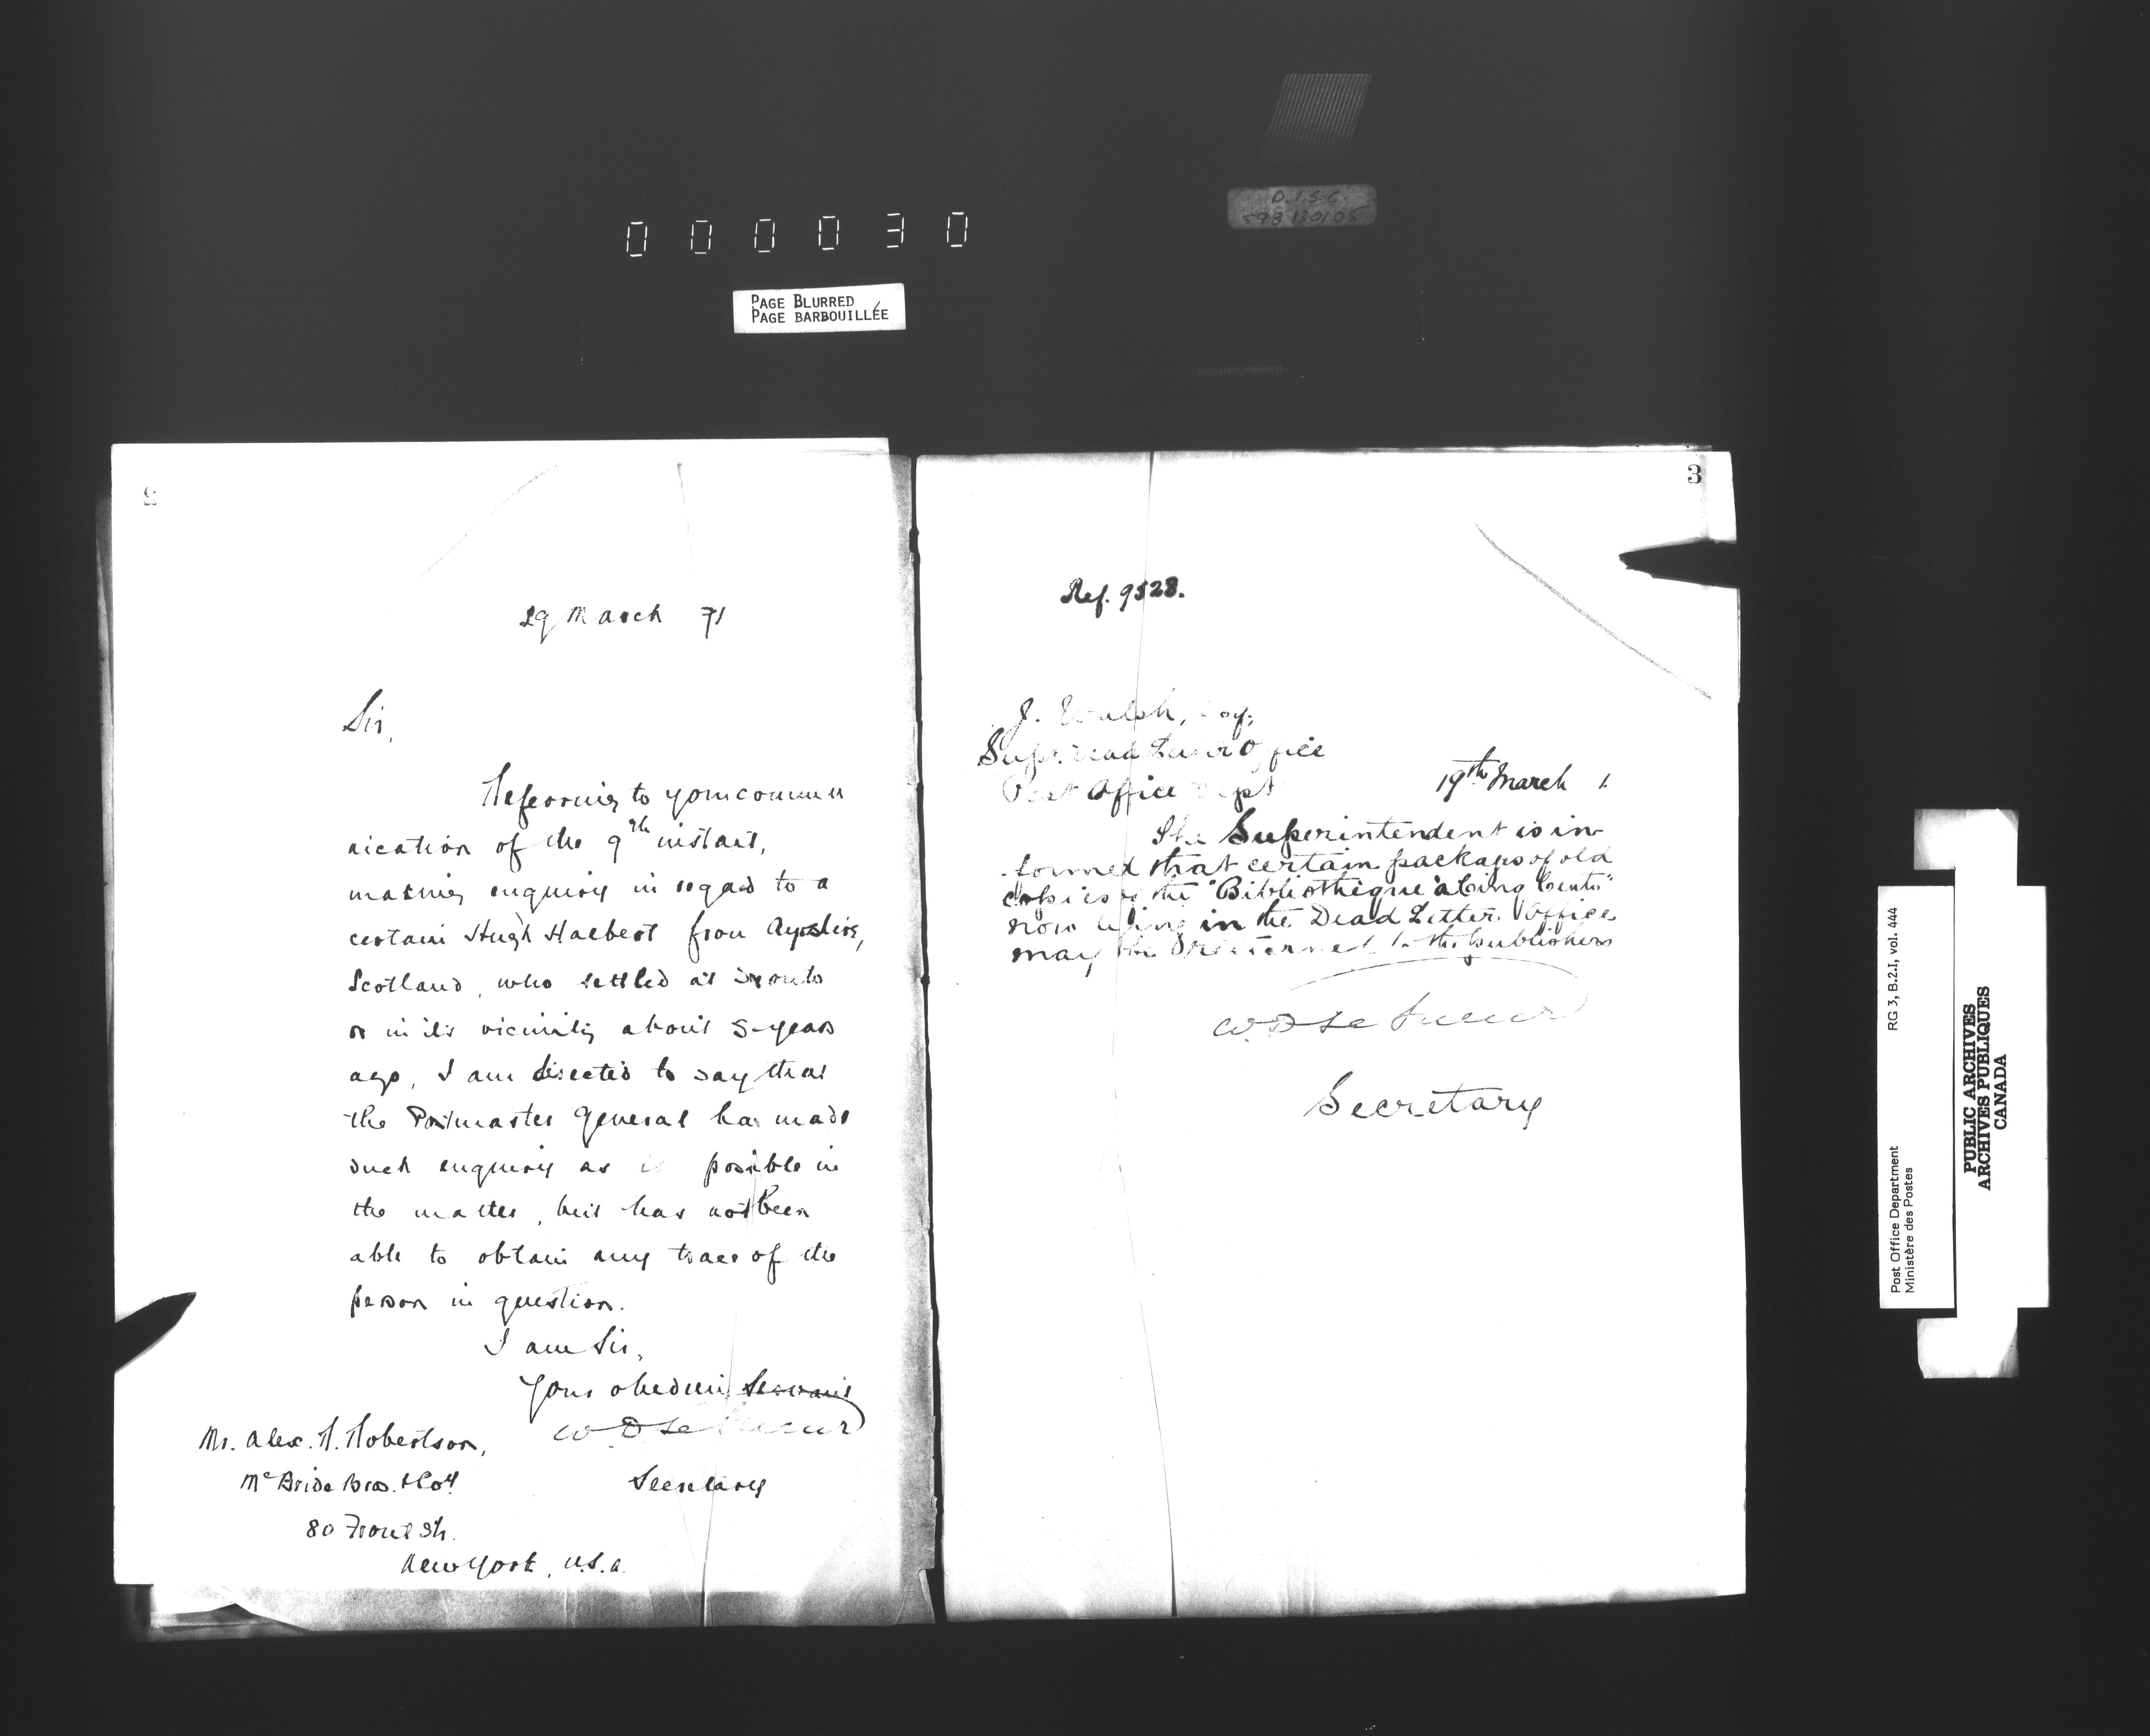 000030
D.I.S.C.
598 130105
PAGE BLURRED
PAGE BARBOUILLÉE
2
29 March 91
Sir,
Referring to your commu
nication of the 9th instant,
making enquiry in regard to a
certain Hugh Halbert from Ayrshire,
Scotland, who settled at Toronto
or in its vicinity about 5 years
ago, I am directed to say that
the Postmaster General has made
such enquiry as is possible in
the matter, but has not been
able to obtain any trace of the
person in question.
I am Sir,
Your obedient Servant
W D LeSueur
Secretary
Mr. Alex. R. Robertson,
McBride Bros. & Coy
80 Front St.
New York, U.S.A.
3
Ref. 9528.
J. Walsh, Esq,
Supt Dead Letter Office
Post Office Dept
19th March 1.
The Superintendent is in-
formed that certain packages of old
copies of the "Bibliothèque à Cinq Cents"
now lying in the Dead Letter Office
may be returned to the publishers
W D LeSueur
Secretary
RG 3, B.2.I, vol. 444
Post Office Department
Ministère des Postes
PUBLIC ARCHIVES
ARCHIVES PUBLIQUES
CANADA